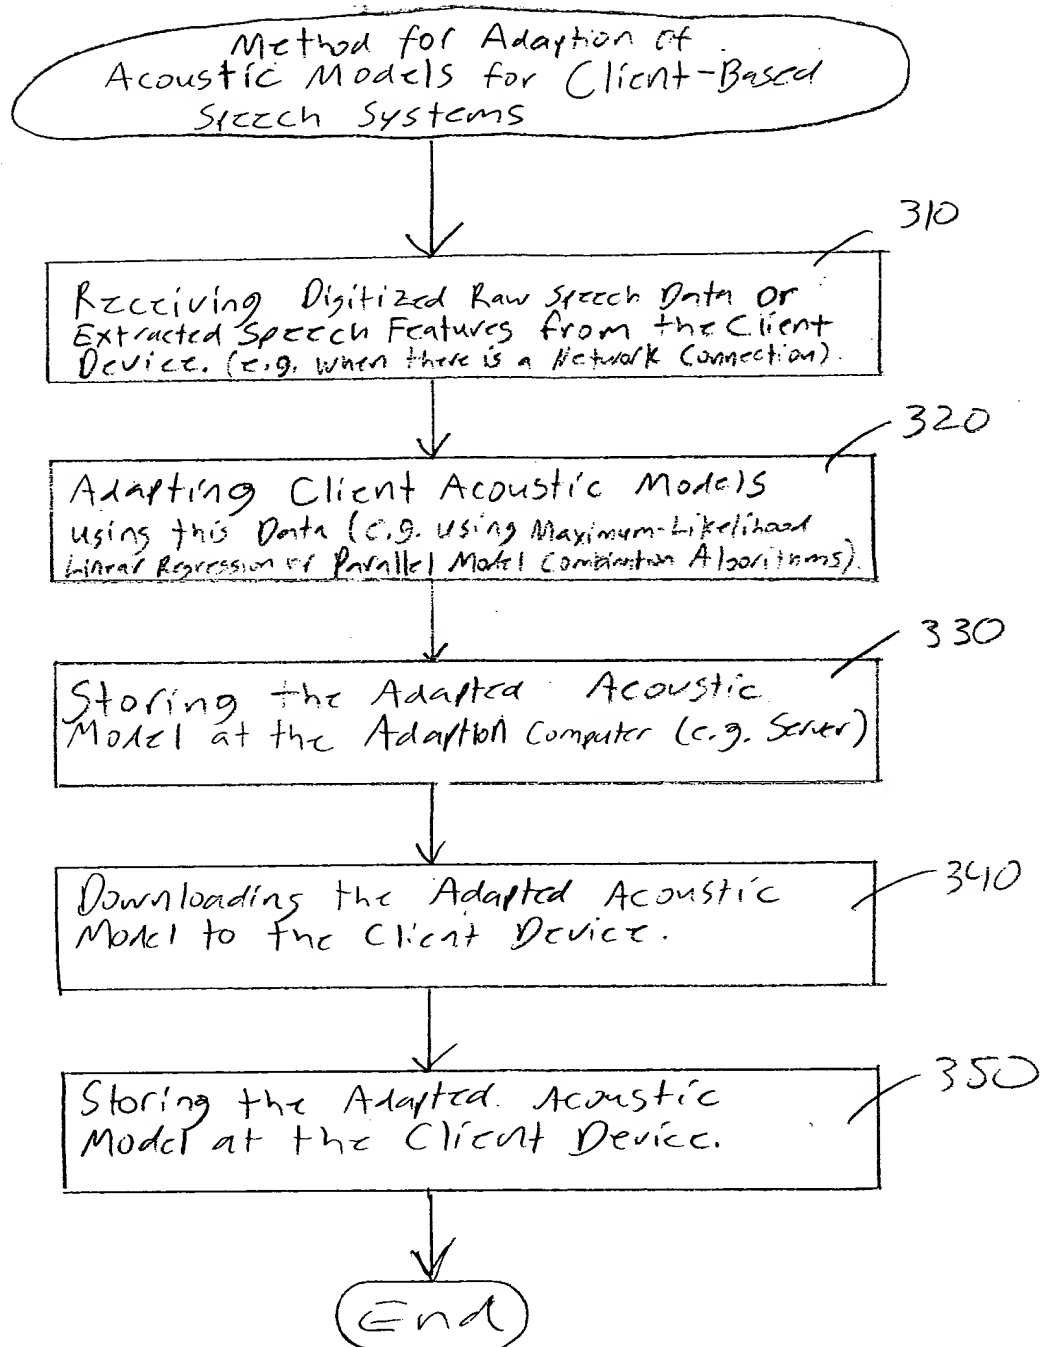 Method for Adaption of
Acoustic Models for Client-Based
Speech Systems
310
Receiving Digitized Raw Speech Data or
Extracted Speech Features from the Client
Device. (e.g. when there is a Network Connection).
320
Adapting Client Acoustic Models
using this Data (e.g. using Maximum-Likelihood
Linear Regression or Parallel Model Combination Algorithms).
330
Storing the Adapted Acoustic
Model at the Adaption Computer (e.g. Server)
340
Downloading the Adapted Acoustic
Model to the Client Device.
350
Storing the Adapted Acoustic
Model at the Client Device.
End